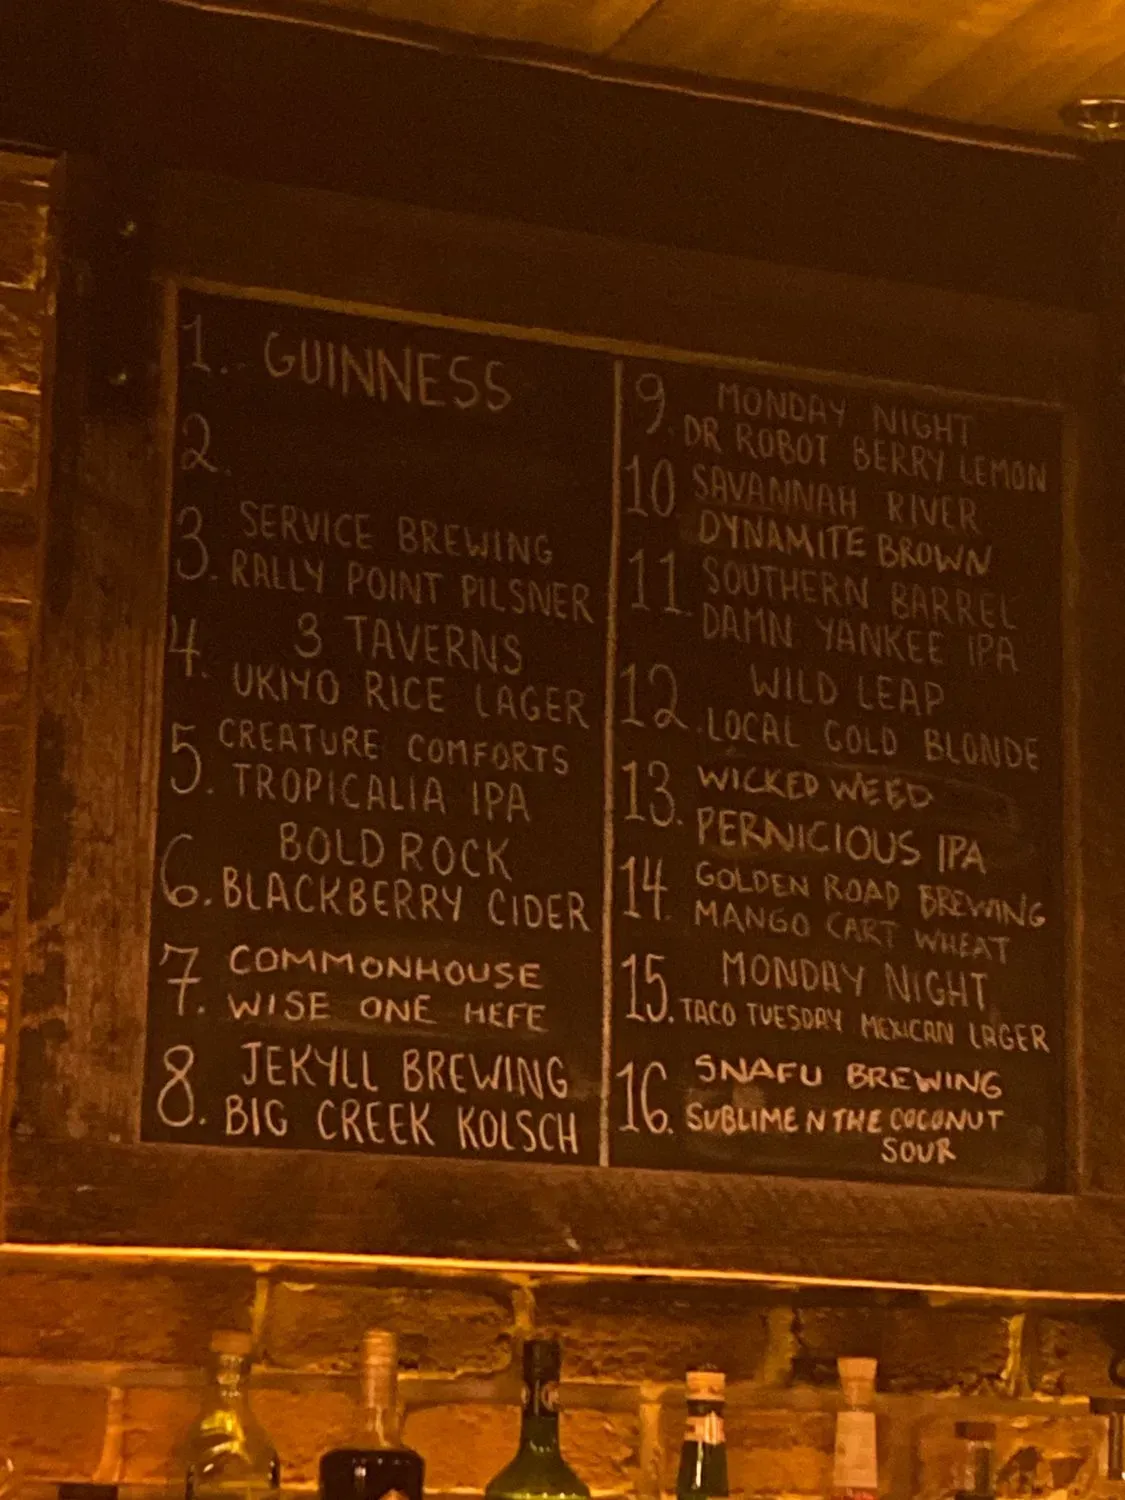 1. GUINNESS
2.
3. SERVICE BREWING
RALLY POINT PILSNER
4. 3 TAVERNS
UKIYO RICE LAGER
5. CREATURE COMFORTS
TROPICALIA IPA
6. BOLD ROCK
BLACKBERRY CIDER
7. COMMONHOUSE
WISE ONE HEFE
8. JEKYLL BREWING
BIG CREEK KOLSCH
9. MONDAY NIGHT
DR ROBOT BERRY LEMON
10. SAVANNAH RIVER
DYNAMITE BROWN
11. SOUTHERN BARREL
DAMN YANKEE IPA
12. WILD LEAP
LOCAL GOLD BLONDE
13. WICKED WEED
PERNICIOUS IPA
14. GOLDEN ROAD BREWING
MANGO CART WHEAT
15. MONDAY NIGHT
TACO TUESDAY MEXICAN LAGER
16. SNAFU BREWING
SUBLIME N THE COCONUT
SOUR